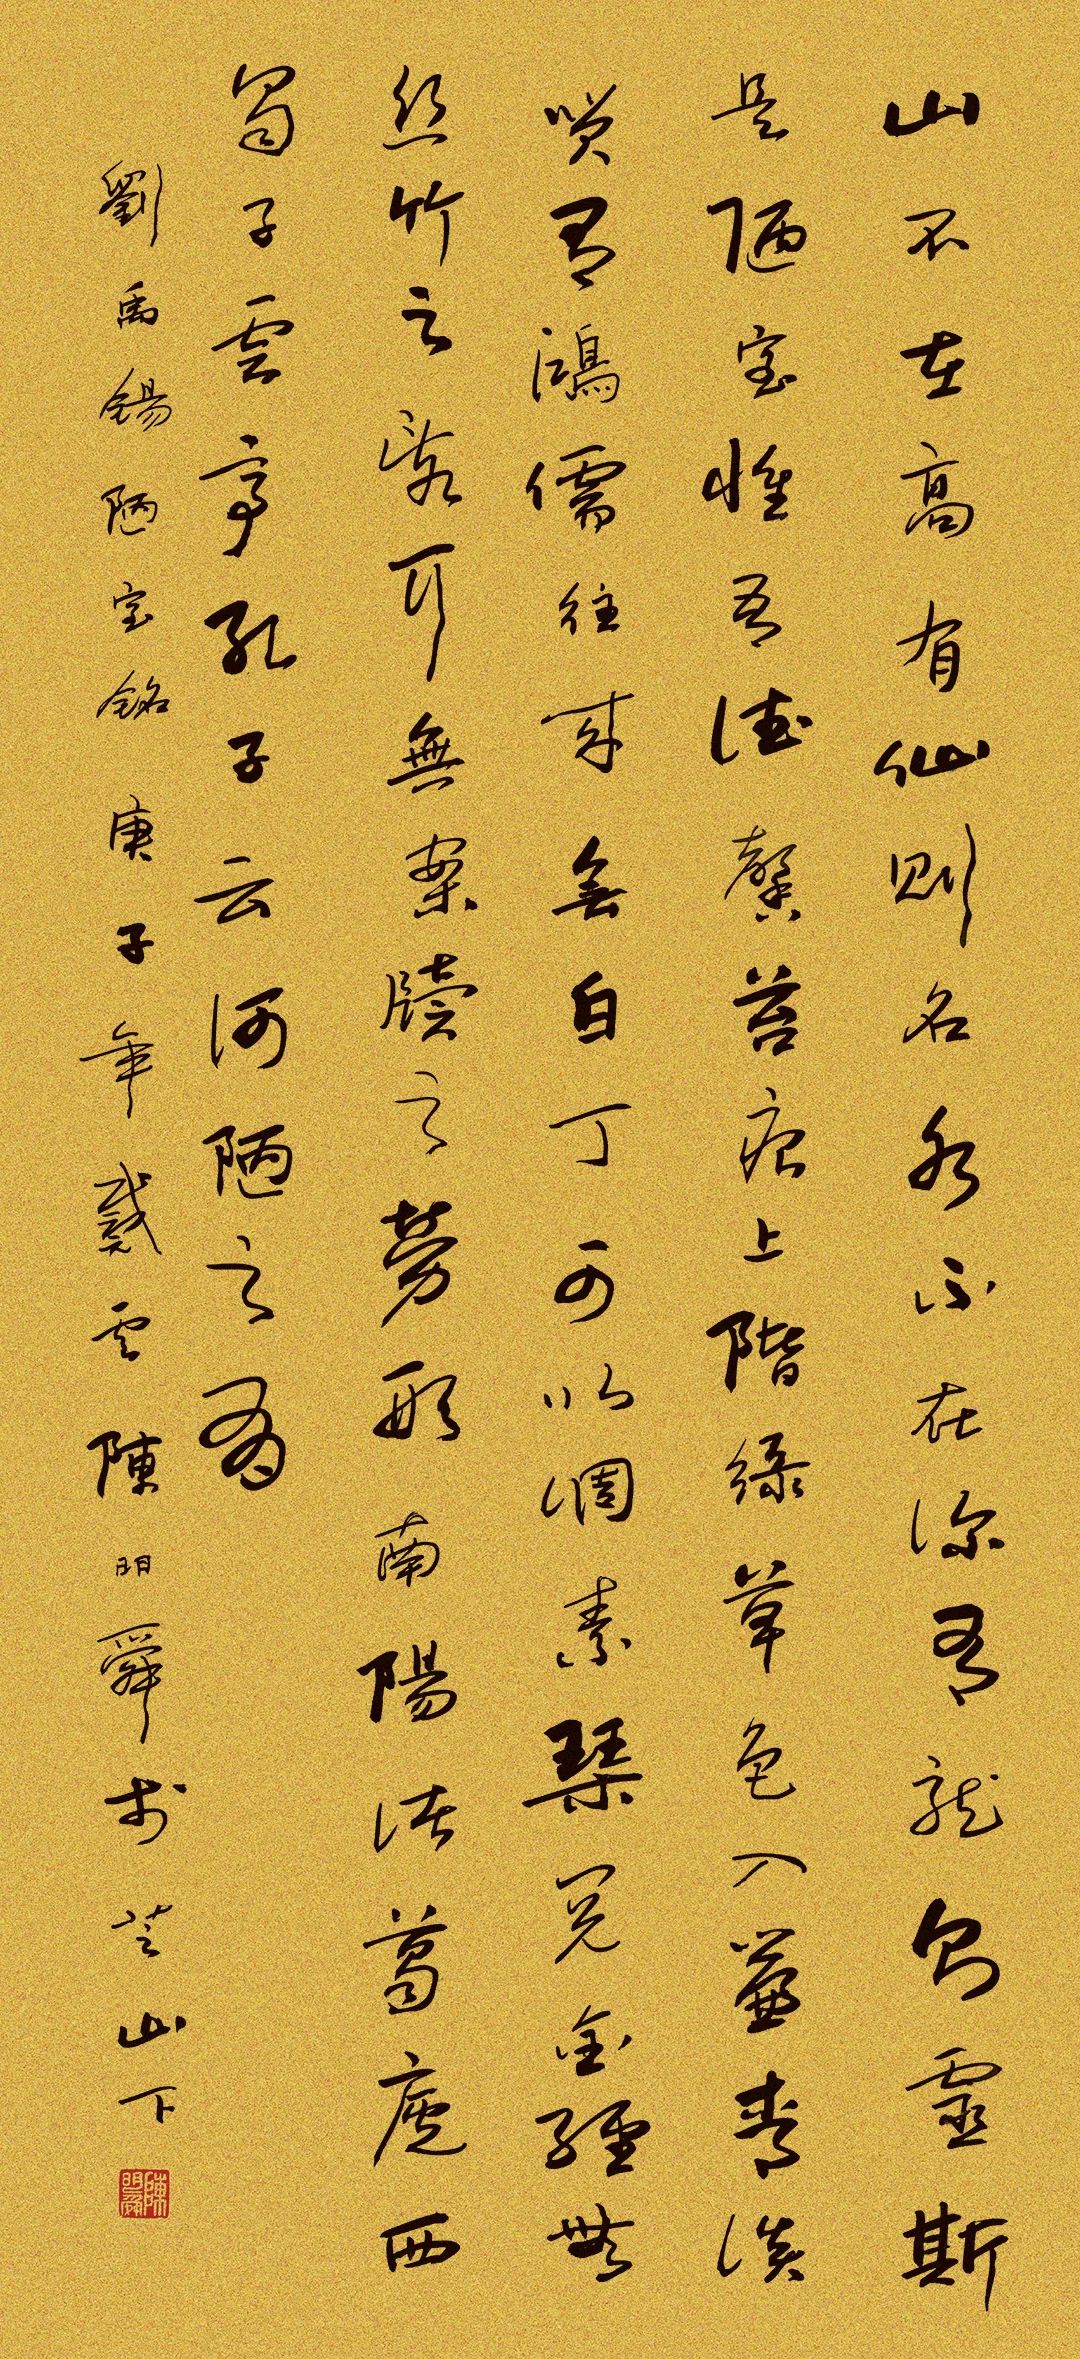 山不在高有仙則名水不在深有龍則靈斯
是陋室惟吾德馨苔痕上階綠草色入簾青談
笑有鴻儒往來無白丁可以調素琴閱金經無
絲竹之亂耳無案牘之勞形南陽諸葛廬西
蜀子雲亭孔子云何陋之有
劉禹錫陋室銘 庚子年戴雲陳明舜於芝山下
陳明舜